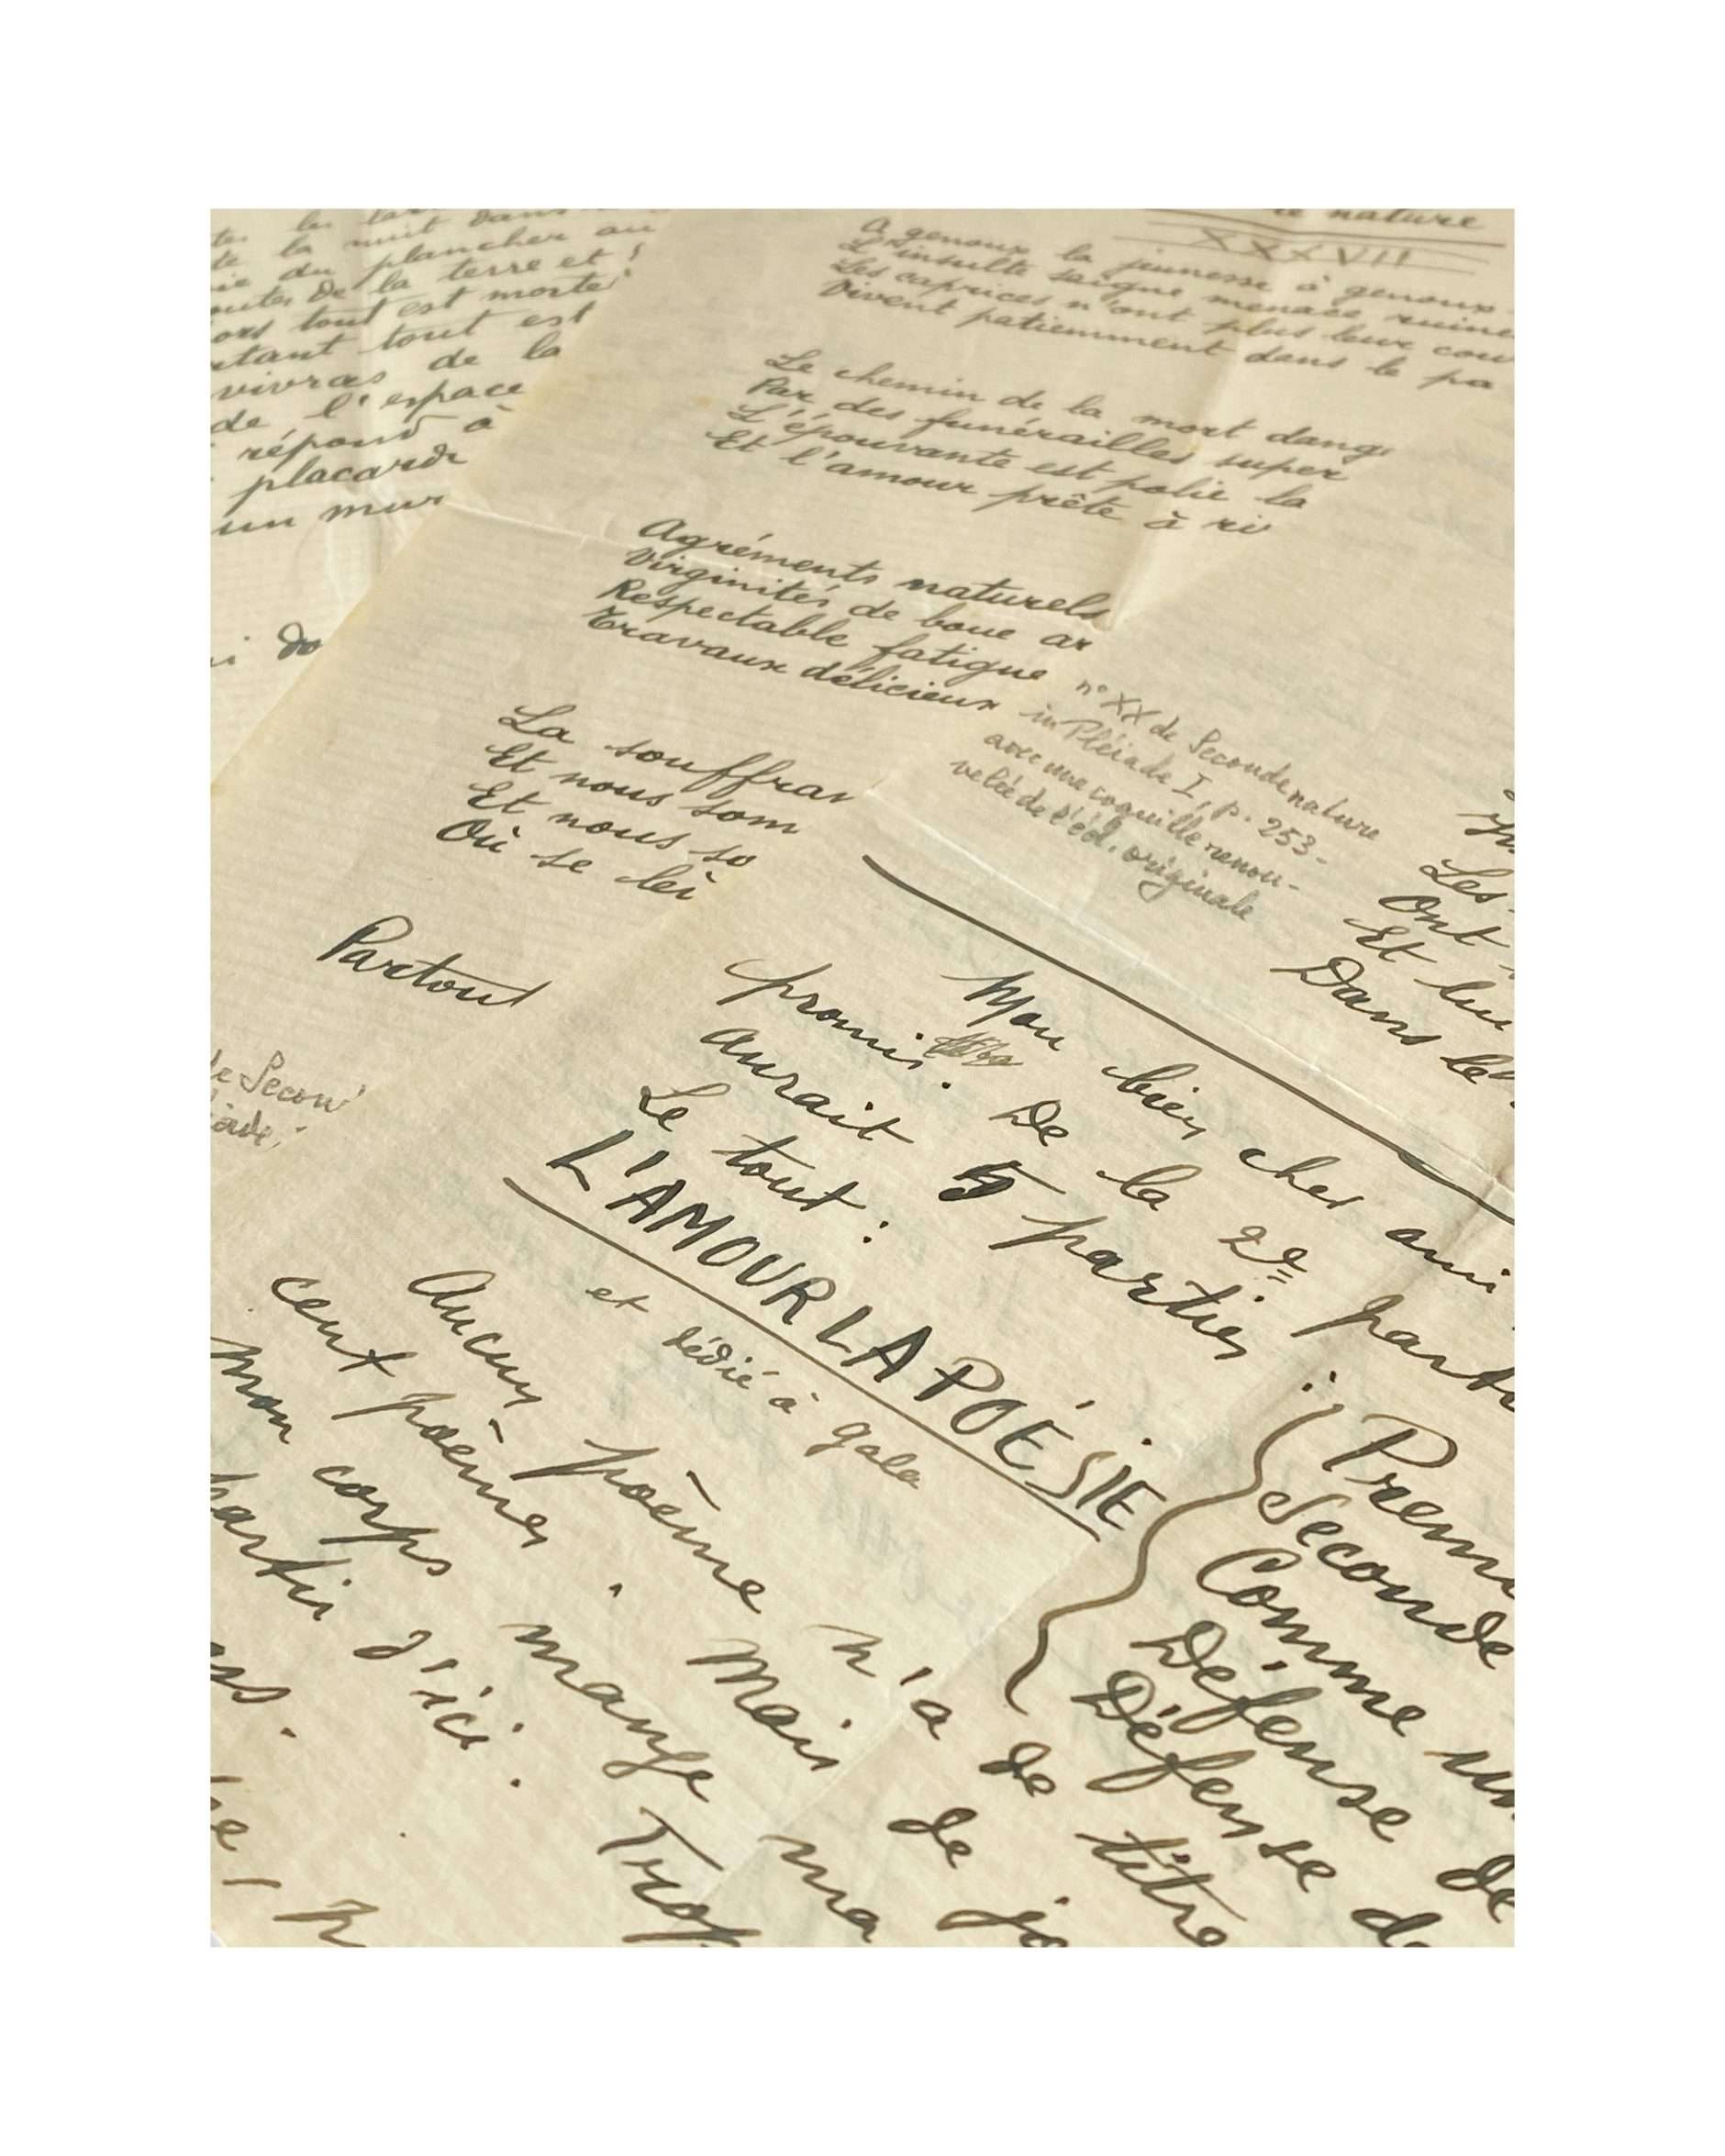 la nuit dans
du plancher au
de la terre et
tout est morte
tout est
vivras de la
de l'espace
répond à
placard
un mur
do
nature
XXXVII
A genoux la jeunesse à genoux
L'insulte saigne menace ruine
Les caprices n'ont plus leur cou
Vivent patiemment dans le pa
Le chemin de la mort dang
Par des funérailles super
L'épouvante est polie la
Et l'amour prête à ri
Agréments naturels
Virginités de boue ar
Respectable fatigue
Travaux délicieux
La souffran
Et nous som
Et nous so
Où se lèi
Partout
n° XX de Seconde nature
in Pléiade I, p. 253-
avec une coquille renou-
velée de l'éd. originale
de Secon
iade,
Les
Ont
Et lui
Dans le
Mon bien cher ami
promis. De la 2e part
aurait 5 parties :
Le tout :
L'AMOUR LA POÉSIE
et dédié à gala
Prem
Seconde
Comme un
Défense de
Défense d
Aucun poème n'a de titre
cent poèmes. Mais de jo
Mon corps mange ma
partir d'ici. Trop